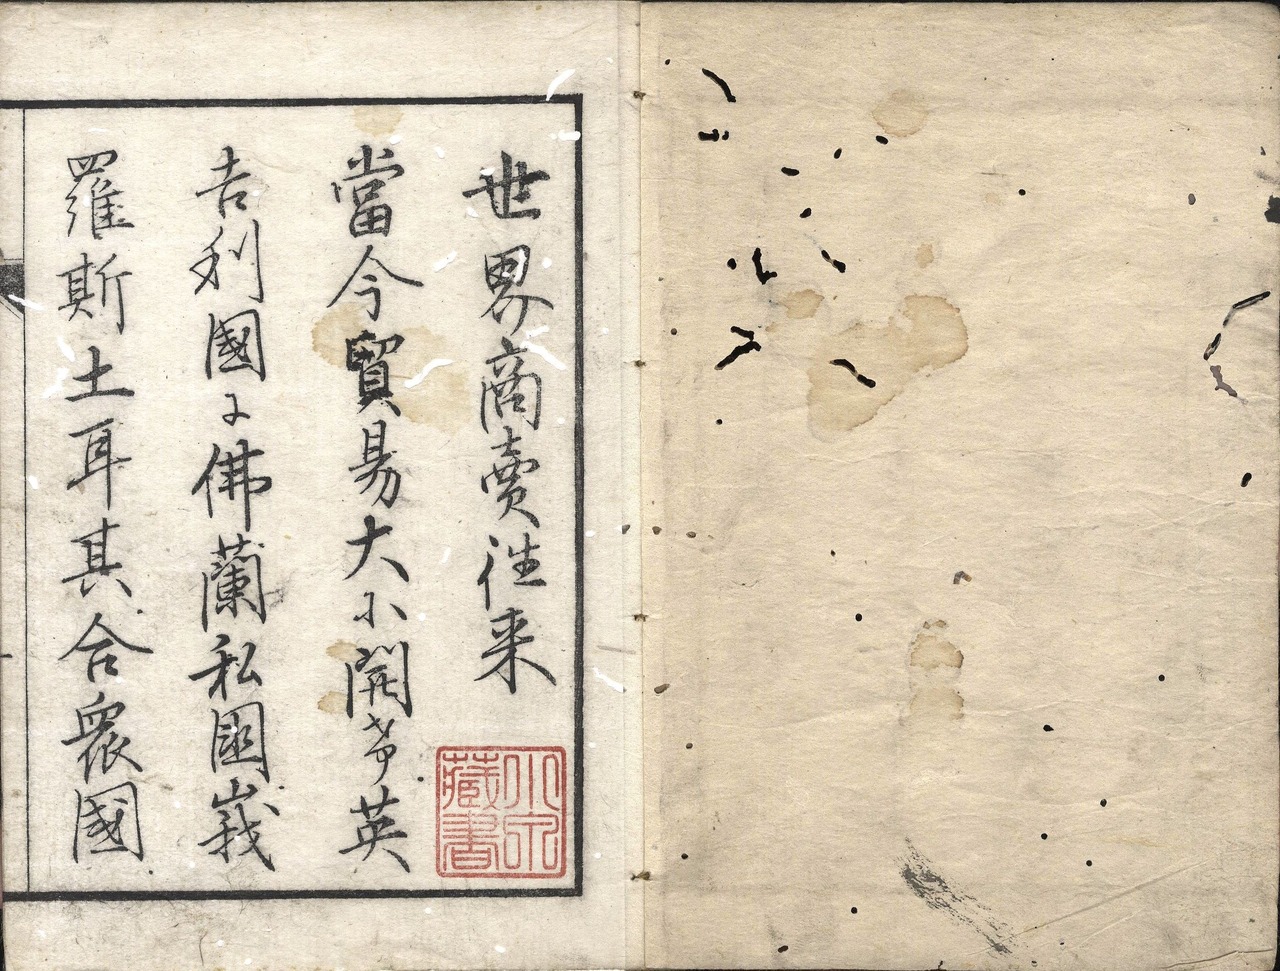 世界商賣往来
當今貿易大小開 英
吉利國 佛蘭私國峩
羅斯土耳其合衆國
藏書